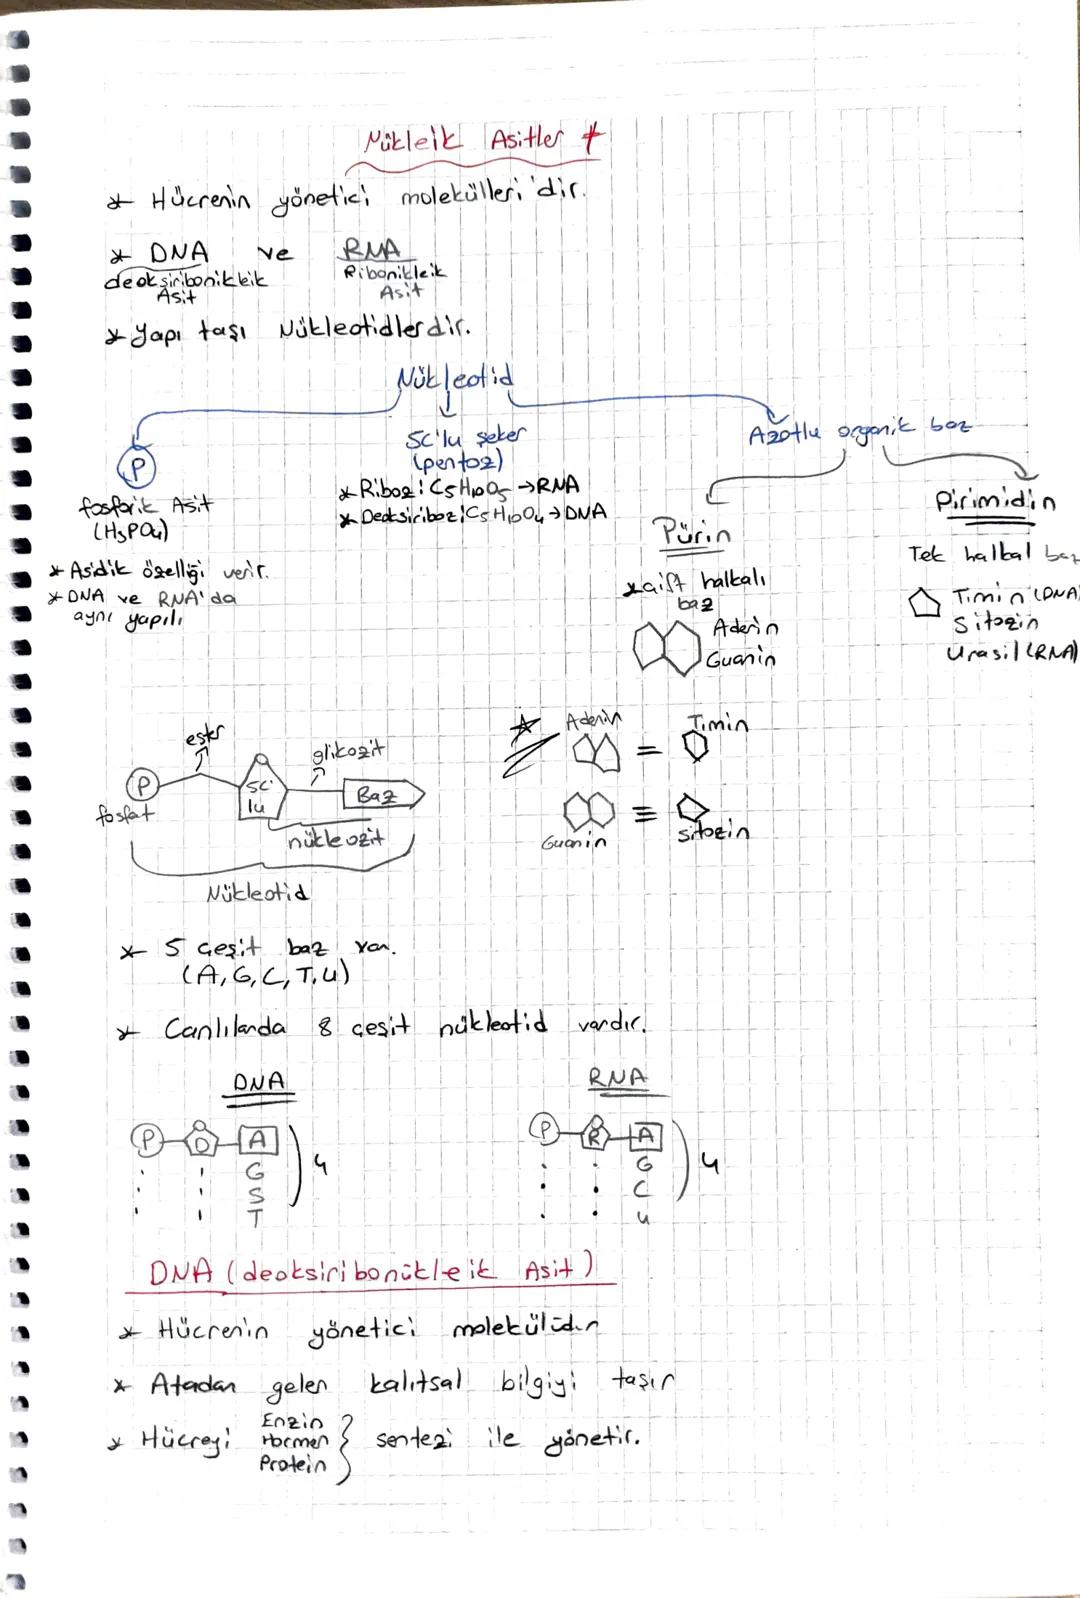 Nükleik Asitler
* Hücrenin yönetici molekülleri'dir.
* DNA ve RNA
deoksiribonikleik Asit
Ribonikleik Asit
* Yapı taşı Nükleotidlerdir.
Nükleotid
P
fosforik Asit
(H3PO4)
* Asidik özelliği verir.
* DNA ve RNA'da
aynı yapılı
5C'lu şeker
(pentoz)
* Riboz: C5H10O5 → RNA
* Deoksiriboz: C5H10O4 → DNA
Azotlu organik baz
Pürin
* çift halkalı
baz
Adenin
Guanin
Pirimidin
Tek halkal baz
Timin (DNA)
Sitozin
Urasil (RNA)
ester
glikozit
P
5C'
lu
Baz
fosfat
nükleozit
Nükleotid
Adenin = Timin
Guanin ≡ sitozin
* 5 çeşit baz var.
(A, G, C, T, U)
* Canlılarda 8 çeşit nükleotid vardır.
DNA
P D A
G
S
T
4
RNA
P R A
G
C
U
4
DNA (deoksiribonükleik Asit)
* Hücrenin yönetici molekülüdür
* Atadan gelen kalıtsal bilgiyi taşır
* Hücreyi Enzin Hormen Protein } sentezi ile yönetir.